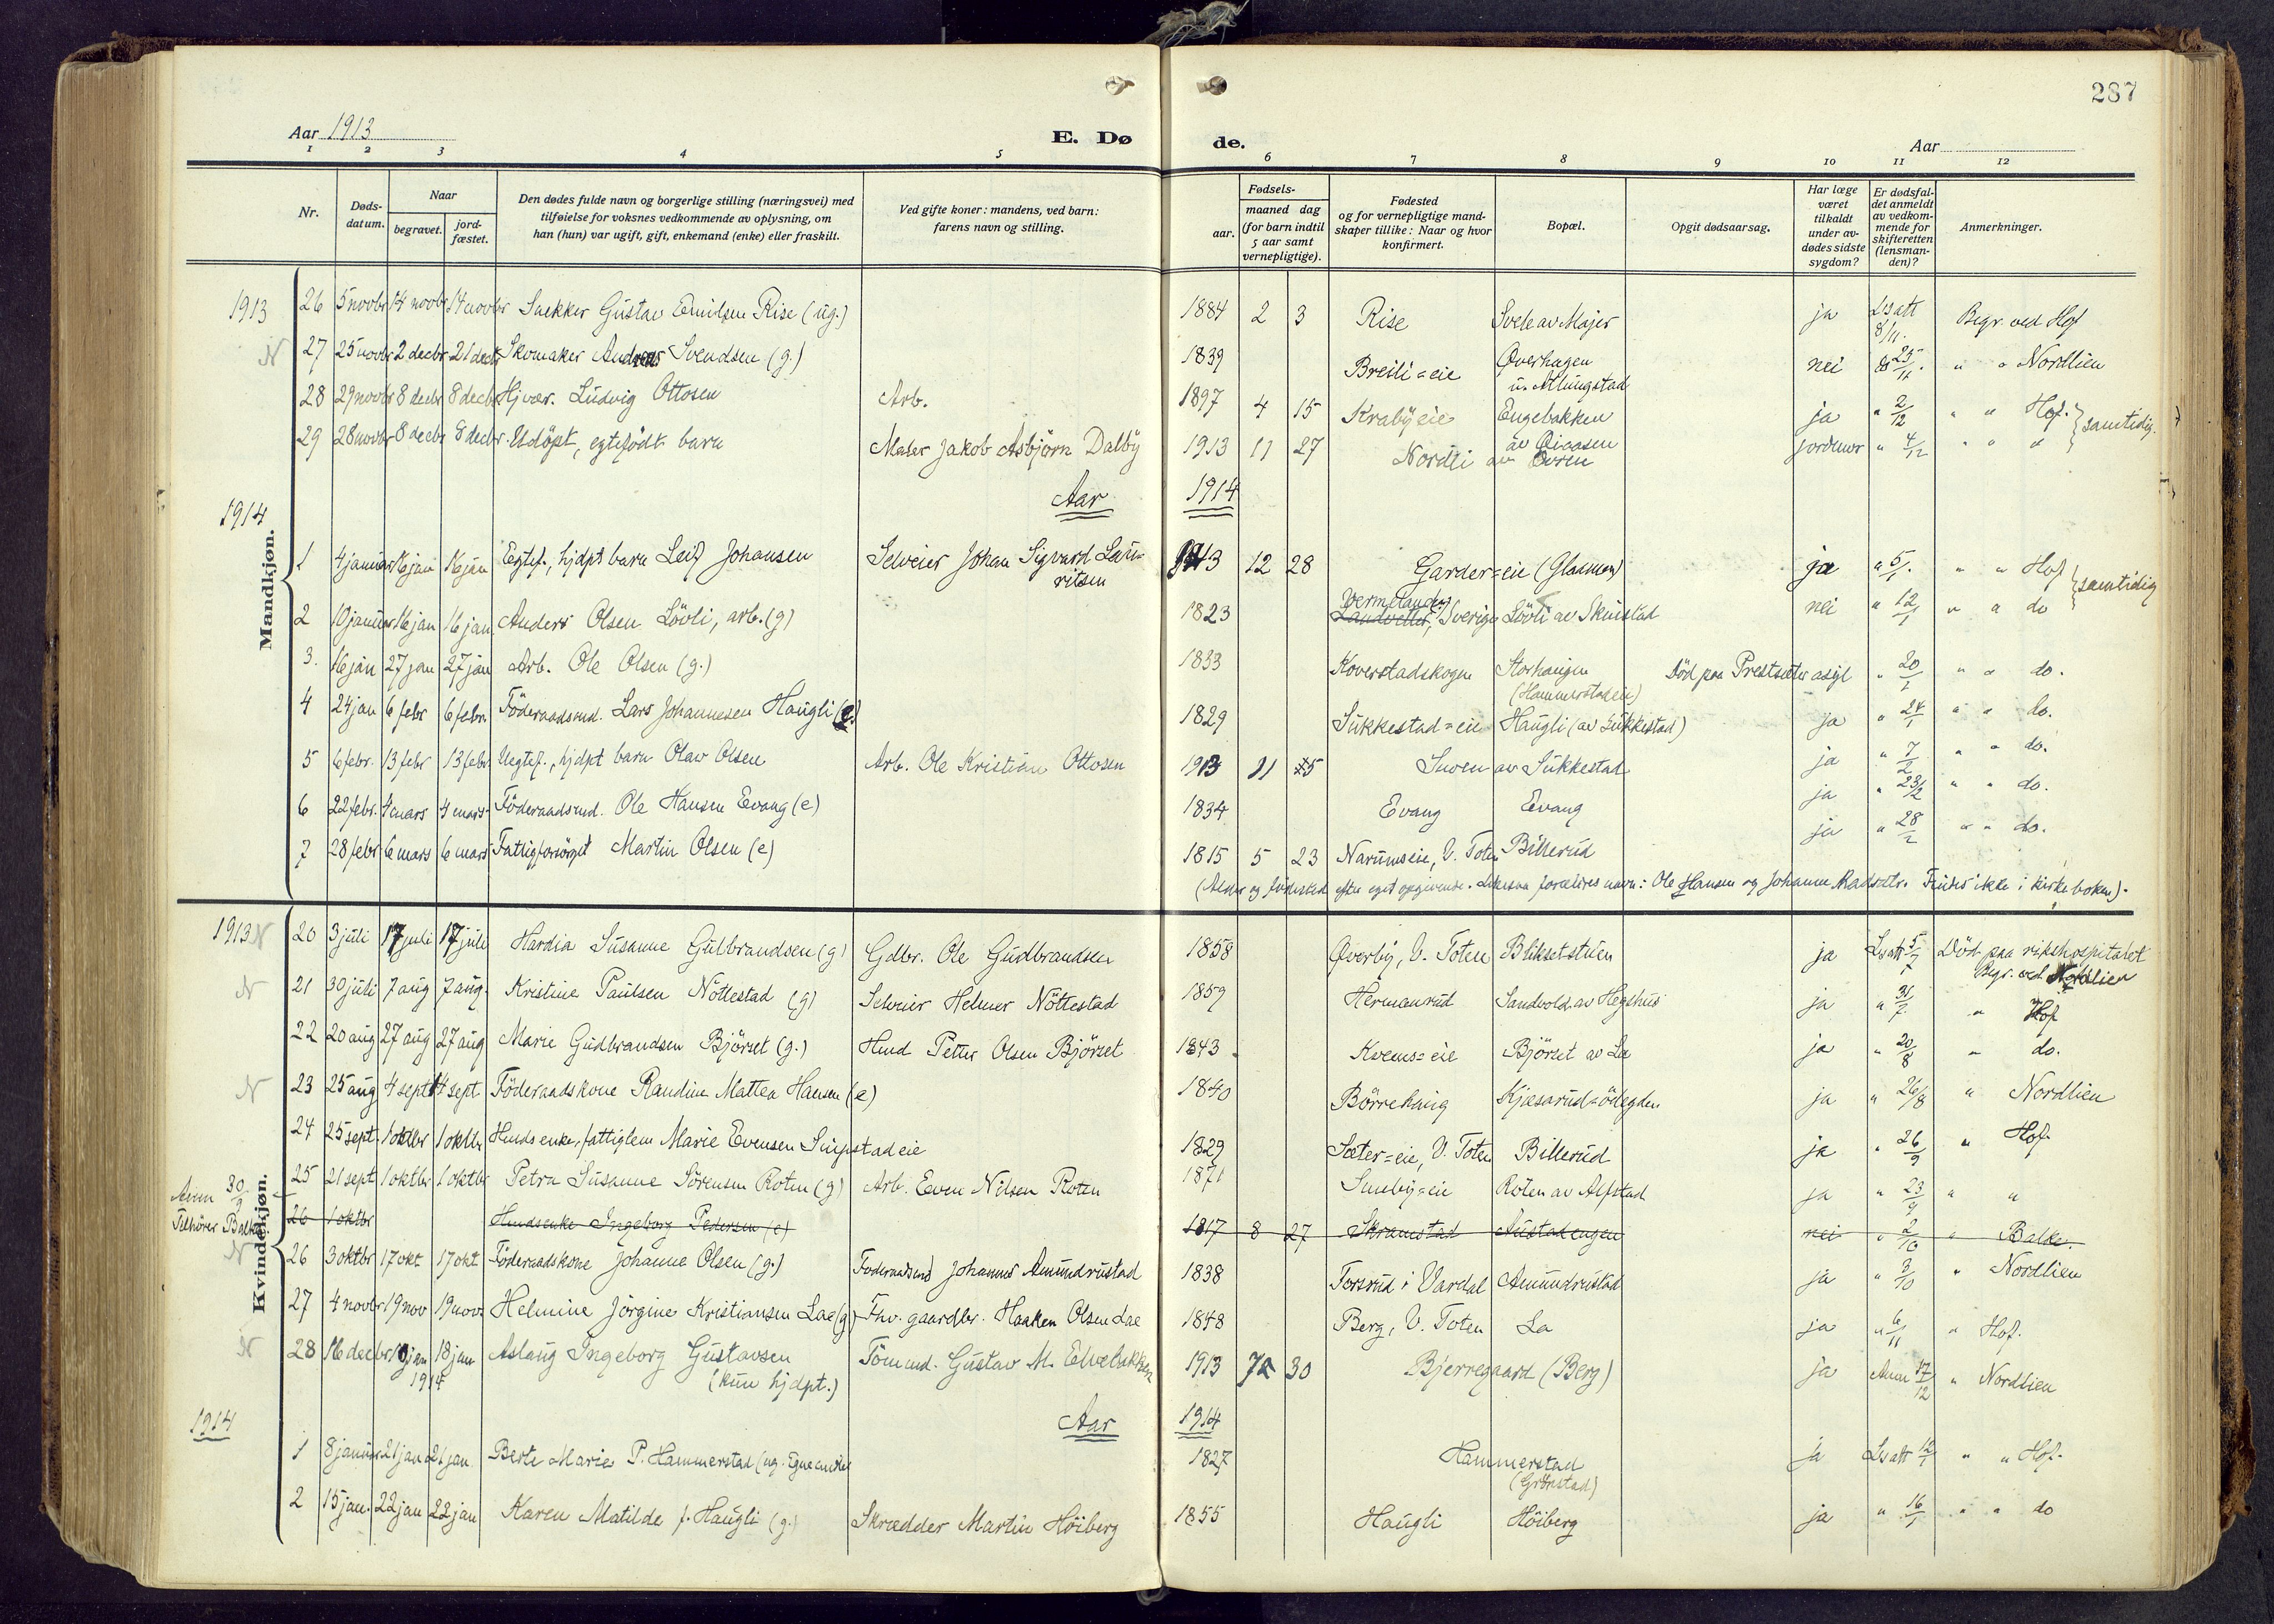 287
Aar 1913 E. Dø de. Aar
1 2 3 4 5 6 7 8 9 10 11 12
Nr. Døds-datum. Naar begravet. jord-fæstet. Den dødes fulde navn og borgerlige stilling (næringsvei) med tilføielse for voksnes vedkommende av oplysning, om han (hun) var ugift, gift, enkemand (enke) eller fraskilt. Ved gifte koner: mandens, ved barn: farens navn og stilling. Fødsels- aar. maaned dag (for barn indtil 5 aar samt vernepligtige). Fødested og for vernepligtige mandskaper tillike: Naar og hvor konfirmert. Bopæl. Opgit dødsaarsag. Har læge været tilkaldt under avdødes sidste sygdom? Er dødsfaldet anmeldt av vedkommende for skifteretten (lensmanden)? Anmerkninger.
Mandkjøn.
1913 26 5 novbr 14 novbr 14 novbr Snekker Gustav Emilsen Rise (ug.) 1884 2 3 Rise Svele av Majer ja Lsatt 8/11. Begr. ved Hof
N 27 25 novbr 2 decbr 21 decbr Skomaker Andreas Svendsen (g.) 1839 Breili=eie Øverhagen u. Alungstad nei 25/11. " " Nordlien
28 29 novbr 8 decbr 8 decbr Hjvær. Ludvig Ottosen Arb. 1897 4 15 Kraby eie Engebakken ja " 2/12 " " Hof. } samtidig.
29 28 novbr 8 decbr 8 decbr. Udöpt, egtefödt barn Maler Jakob Asbjörn Dalby 1913 11 27 Nordli av Evren jordmor " 4/12 " " "
1914 Aar 1914
1 4 januar 16 jan 16 jan Egtef., hjdpt barn Leif Johansen Selveier Johan Sigvard Lauritsen 1913 12 28 Garder=eie (Glasmen) ja " 5/1. " " Hof } samtidig
2 10 januar 16 jan 16 jan Anders Olsen Lövli, arb. (g) 1823 Vermeland, Sverige Lövli av Skuistad nei " 12/1 " " do
3. 16 jan 27 jan 27 jan Arb. Ole Olsen (g.) 1833 Koverstadskogen Storhaugen (Hammerstadeie) Död paa Prestsæter asyl " 20/1 " " do.
4 24 jan 6 febr 6 febr. Föderaadsmd. Lars Johannesen Haugli (e.) 1829 Sukkestad=eie Haugli (av Sukkestad) ja " 24/1 " " do.
5 6 febr. 13 febr 13 febr. Uegtef., hjdpt barn Olav Olsen Arb. Ole Kristian Ottosen 1913 11 25 Suven av Sukkestad ja " 7/2 " " do.
6 22 febr. 4 mars 4 mars Föderaadsmd. Ole Hansen Evang (e) 1834 Evang Evang ja " 23/2 " " do.
7 28 febr 6 mars 6 mars Fattigforsörget Martin Olsen (e) 1815 5 23 Narumseie, V. Toten Billerud ja " 28/2 " " do.
(Alder og födested efter eget opgivende. Likesaa forældres navn: Ole Hansen og Johanne Madsdtr. Findes ikke i kirkeboken).
Kvindekjøn.
1913 N 20 3 juli 17 juli 17 juli Hardia Susanne Gulbrandsen (g) Gdbr. Ole Gudbrandsen 1858 Øverby, V. Toten Blikset stuen ja Lsatt 5/7 Död paa rikshospitalet Begr. ved Nordlien
N 21 30 juli 7 aug 7 aug. Kristine Paulsen Nöttestad (g) Selveier Helmer Nöttestad 1859 Hermanrud Sandvold av Hegshus ja " 31/7. " Hof
22 20 aug 27 aug 27 aug Marie Gudbrandsen Björset (g.) Hmd Petter Olsen Björset 1843 Kvems=eie Björset av Lee ja " 20/8 " do.
N 23 25 aug 4 sept 4 sept Föderaadskone Randine Mattea Hansen (e) 1840 Börrehaug Kjæsarud=ödegden ja " 26/8 " Nordlien
24 25 sept. 1 oktbr 1 oktbr Husmds enke, fattiglem Marie Evensen Suipstadeie 1829 Sæter=eie, V. Toten Billerud ja " 26/9 " Hof.
25 21 sept 1 oktbr 1 oktbr Petra Susanne Sörensen Roten (g) Arb. Even Nilsen Roten 1871 Sundby=eie Roten av Alfstad ja " 23/9 " "
Anm 30/9 Tilhörer Balke 26 1 oktbr Husmdsenke Ingeborg Pedersen (e) 1817 8 27 Skramstad Austadengen nei " 2/10 " Balke.
N 26 3 oktbr 17 okt 17 okt Föderaadskone Johanne Olsen (g.) Foderaadsmd Johannes Amundrustad 1838 Forsrud i Vardal Amundrustad ja " 3/10 " Nordlien
27 4 novbr 19 nov 19 nov. Helmine Jörgine Kristiansen Lae (g) Fhv. gaardbr. Haaken Olsen Lae 1848 Berg, V. Toten La ja " 6/11 " Hof.
N 28 16 decbr 18 jan 1914 18 jan Aslaug Ingeborg Gustavsen (kun hjdpt.) Tömmd. Gustav M. Elvebakken 1913 30 Bjerregaard (Berg) ja Anm 17/12 " Nordlien
1914 Aar 1914
1 8 januar 21 jan 21 jan Berte Marie P. Hammerstad (ug. 1827 Hammerstad (Grönstad) ja Lsatt 12/1 " " Hof.
2 15 jan. 22 jan 22 jan Karen Matilde f. Haugli (g.) Skrædder Martin Höiberg 1855 Haugli Höiberg ja " 16/1 " " do